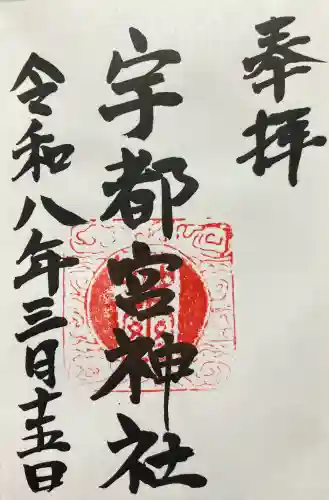 奉拝
宇都宮神社
令和八年三日十五日